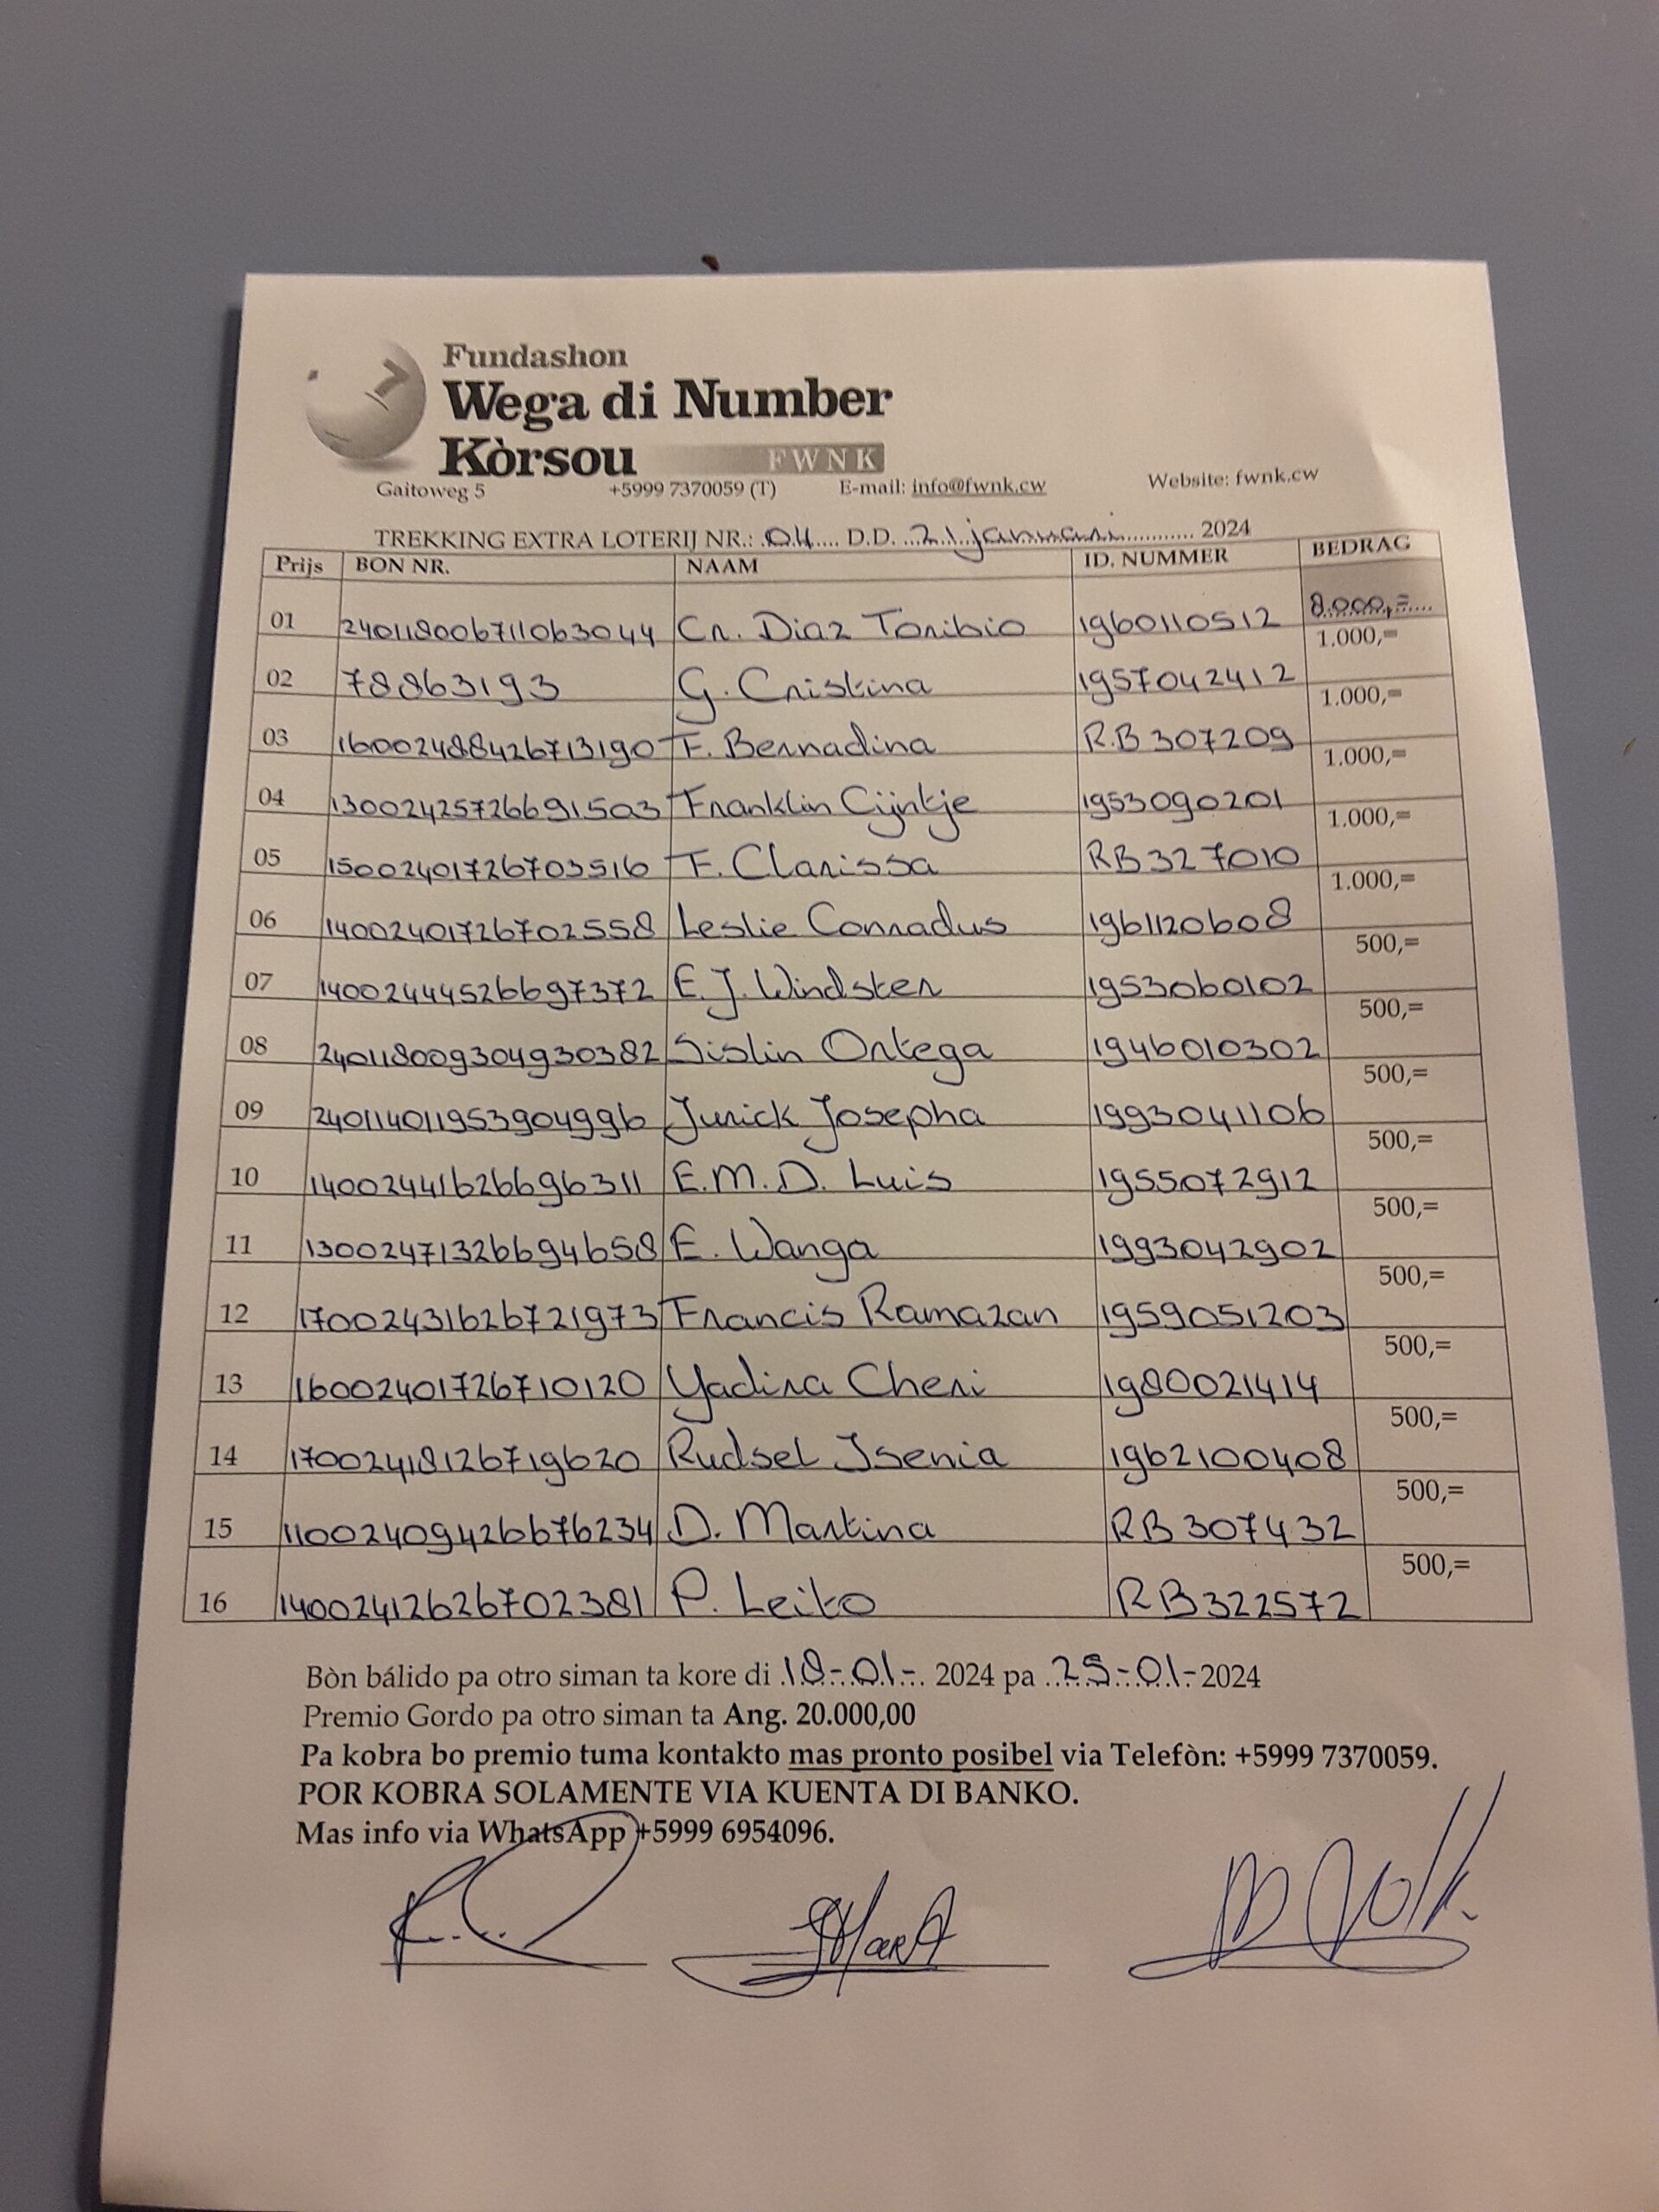 Fundashon
Wega di Number
Kòrsou FWNK
Gaitoweg 5 +5999 7370059 (T) E-mail: info@fwnk.cw Website: fwnk.cw
TREKKING EXTRA LOTERIJ NR.: 04 D.D. 21 januari 2024
Prijs BON NR. NAAM ID. NUMMER BEDRAG
01 240118006711063044 Cr. Diaz Toribio 1960110512 8.000,=
02 78863193 G. Cristina 1957042412 1.000,=
03 16002488426713190 F. Bernadina RB307209 1.000,=
04 13002425726691503 Franklin Cijntje 1953090201 1.000,=
05 15002401726703516 F. Clarissa RB327010 1.000,=
06 14002401726702558 Leslie Conradus 1961120608 1.000,=
07 14002444526697372 E.J. Windster 1953060102 500,=
08 240118009304930382 Sislin Ortega 1946010302 500,=
09 240114011953904996 Jurick Josepha 1993041106 500,=
10 14002441626696311 E.M.D. Luis 1955072912 500,=
11 13002471326694658 E. Wanga 1993042902 500,=
12 17002431626721973 Francis Ramazan 1959051203 500,=
13 16002401726710120 Yadira Cheri 1980021414 500,=
14 17002418126719620 Rudsel Isenia 1962100408 500,=
15 11002409426676234 D. Martina RB307432 500,=
16 14002412626702381 P. Leito RB322572 500,=
Bòn bálido pa otro siman ta kore di 18-01- 2024 pa 25-01-2024
Premio Gordo pa otro siman ta Ang. 20.000,00
Pa kobra bo premio tuma kontakto mas pronto posibel via Telefòn: +5999 7370059.
POR KOBRA SOLAMENTE VIA KUENTA DI BANKO.
Mas info via WhatsApp +5999 6954096.